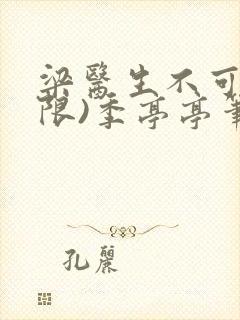 梁醫生不可
限)季亭亭筆
孔麗